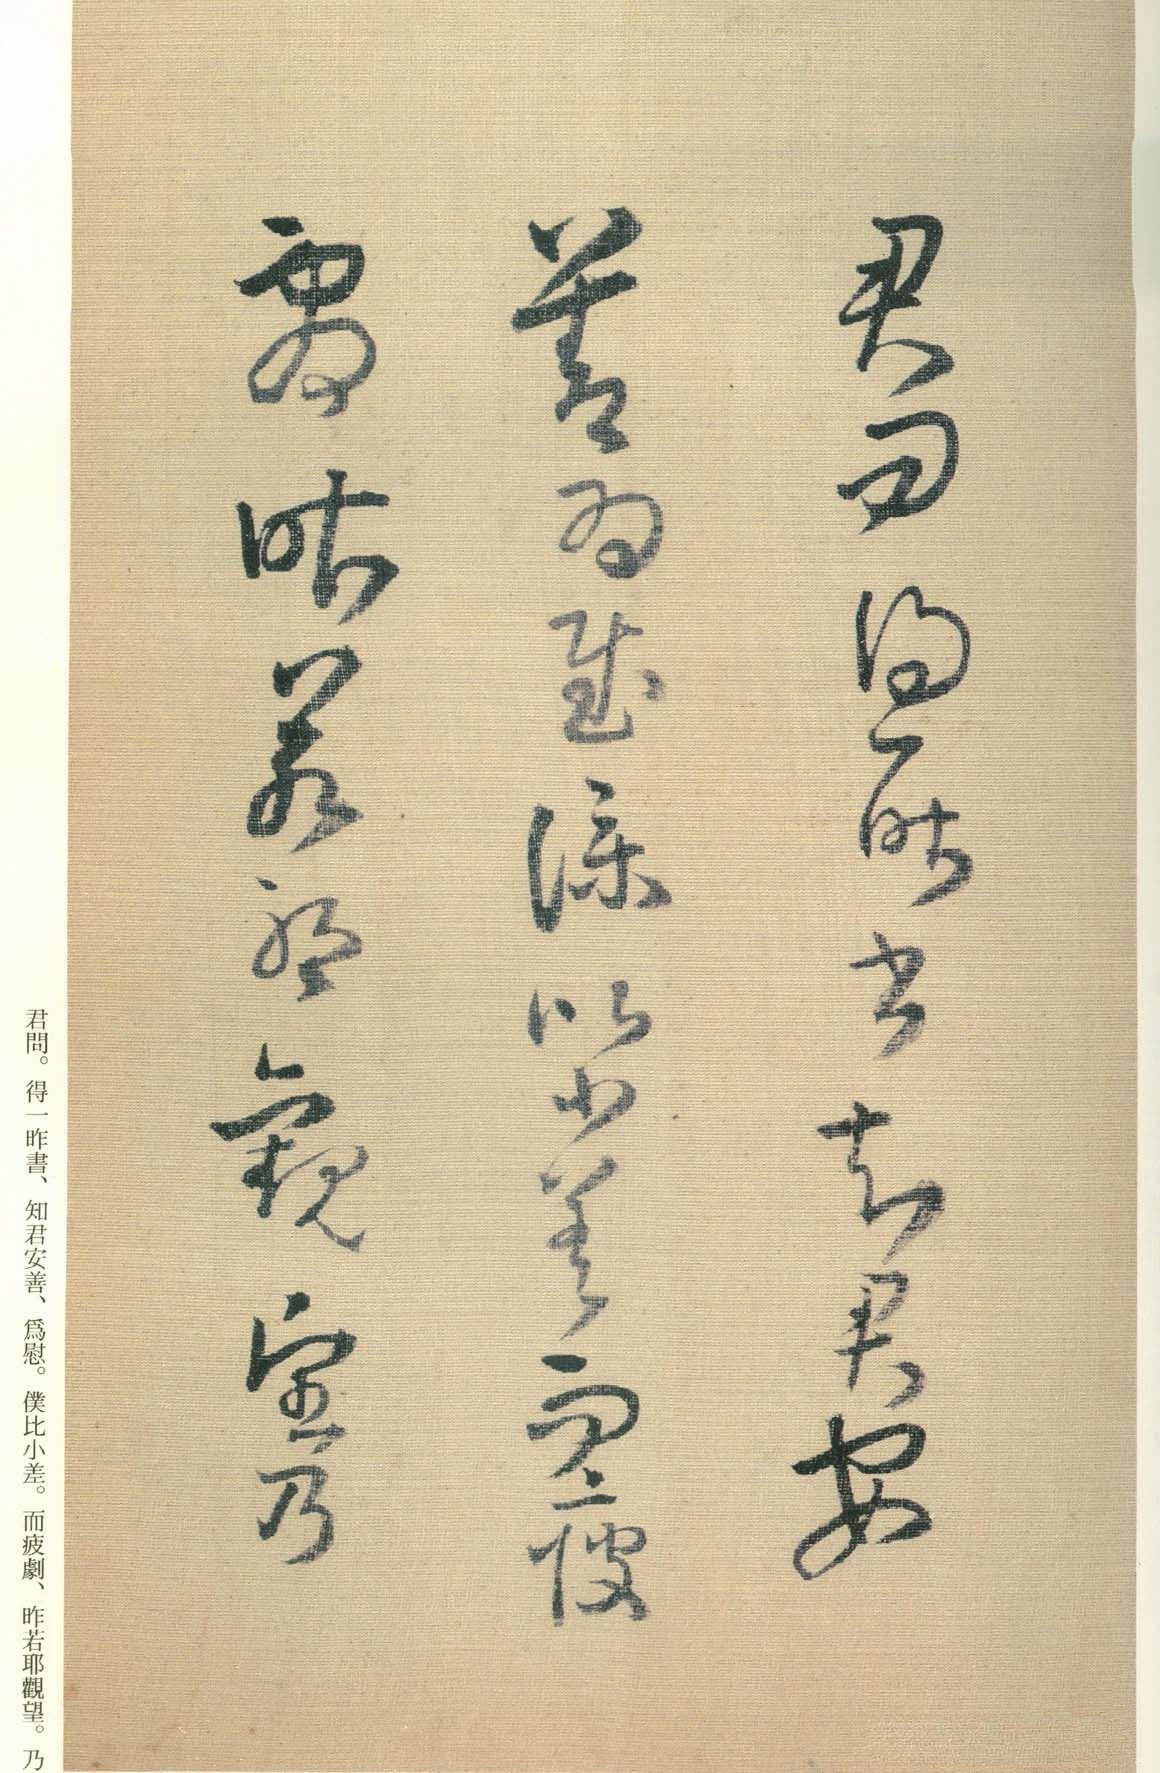 君問得一昨書知君安
善為慰僕比小差而疲
劇昨若耶觀望乃
君問。得一昨書、知君安善、爲慰。僕比小差。而疲劇、昨若耶觀望。乃